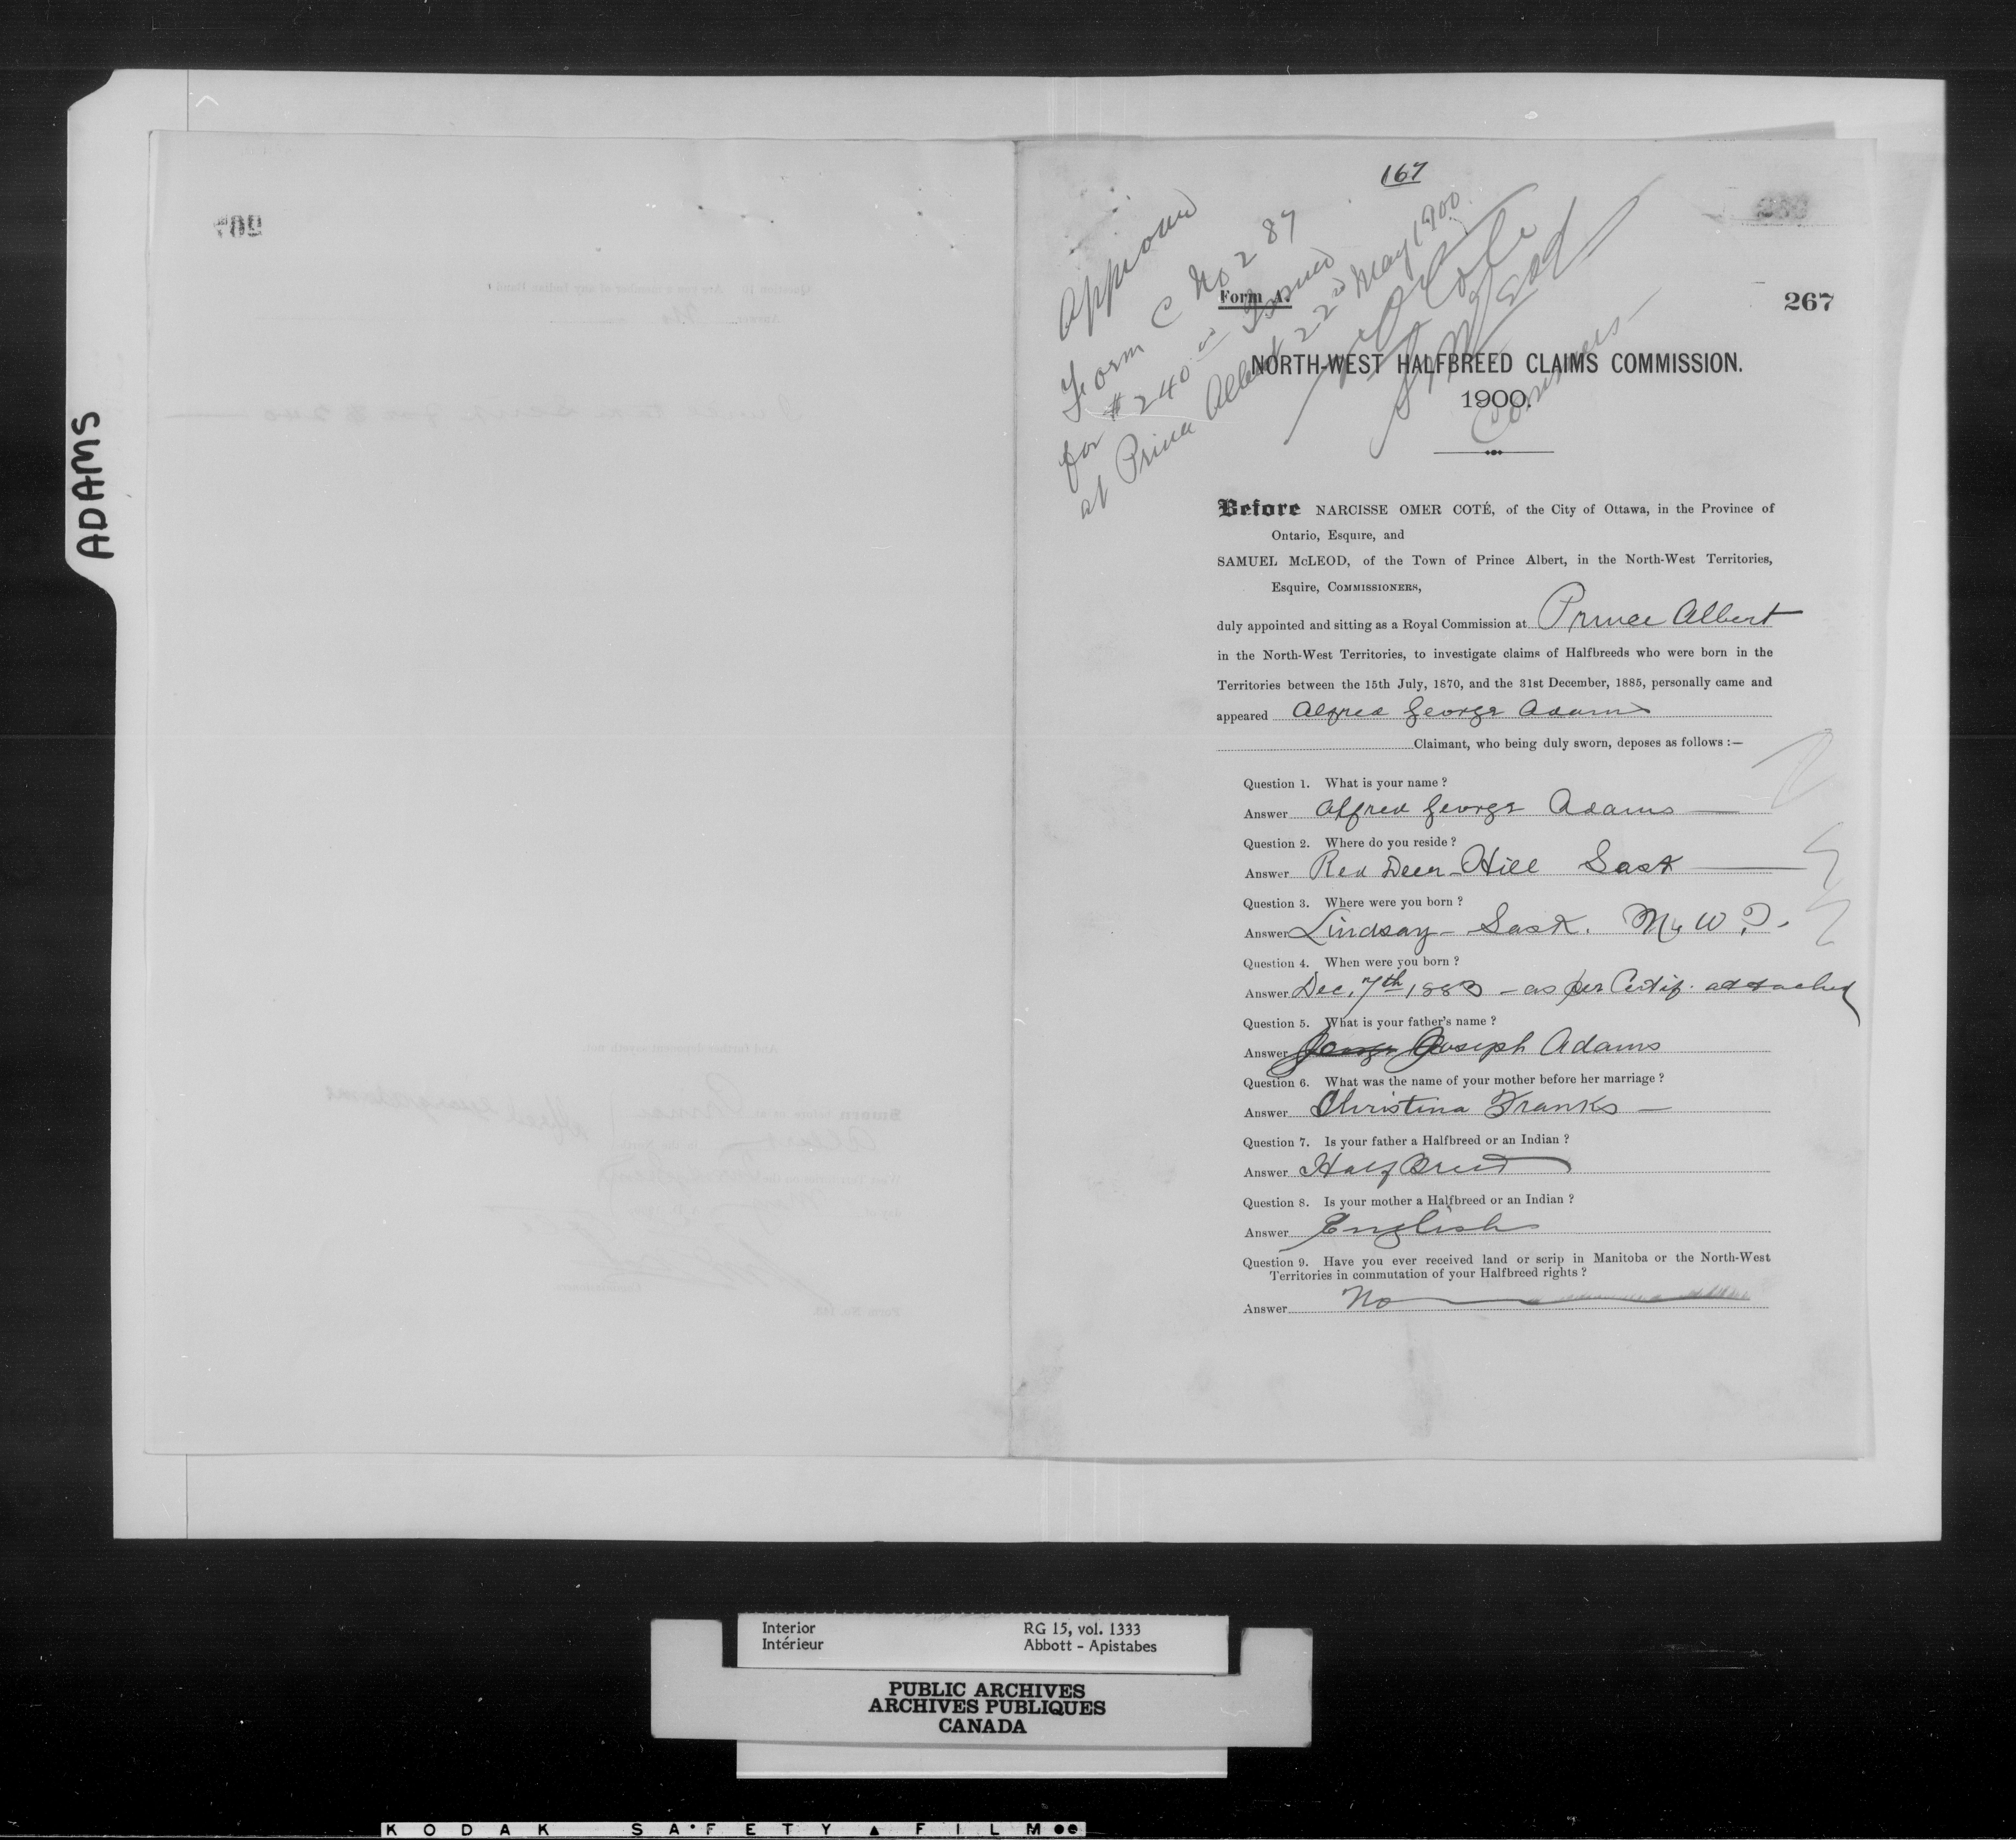 ADAMS
167
Approved
Form C No 287
for $240.00 Issued
at Prince Albert 22nd May 1900
N O Coté
S McLeod
Comsrs
Form A.
267
NORTH-WEST HALFBREED CLAIMS COMMISSION.
1900.
Before NARCISSE OMER COTÉ, of the City of Ottawa, in the Province of
Ontario, Esquire, and
SAMUEL McLEOD, of the Town of Prince Albert, in the North-West Territories,
Esquire, COMMISSIONERS,
duly appointed and sitting as a Royal Commission at Prince Albert
in the North-West Territories, to investigate claims of Halfbreeds who were born in the
Territories between the 15th July, 1870, and the 31st December, 1885, personally came and
appeared Alfred George Adams
Claimant, who being duly sworn, deposes as follows :—
Question 1. What is your name ?
Answer Alfred George Adams
Question 2. Where do you reside ?
Answer Red Deer Hill Sask
Question 3. Where were you born ?
Answer Lindsay - Sask. N. W. T.
Question 4. When were you born ?
Answer Dec. 7th 1883 - as per Certif. attached
Question 5. What is your father's name ?
Answer George Joseph Adams
Question 6. What was the name of your mother before her marriage ?
Answer Christina Franks —
Question 7. Is your father a Halfbreed or an Indian ?
Answer Half Breed
Question 8. Is your mother a Halfbreed or an Indian ?
Answer English
Question 9. Have you ever received land or scrip in Manitoba or the North-West
Territories in commutation of your Halfbreed rights ?
Answer No
Interior RG 15, vol. 1333
Intérieur Abbott - Apistabes
PUBLIC ARCHIVES
ARCHIVES PUBLIQUES
CANADA
KODAK SAFETY FILM